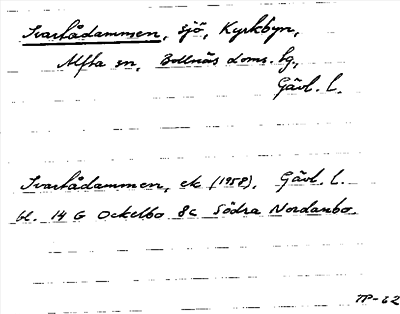 Svartådammen, sjö, Kyrkbyn,
Alfta sn, Bollnäs doms. tg,
Gävl. l.
Svartådammen, ek (1958), Gävl. l.
bl. 14 G Ockelbo 8c Södra Nordanbo
TP-62